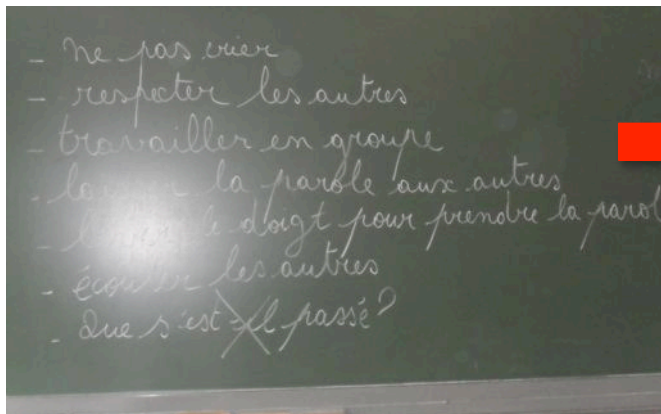 - ne pas crier
- respecter les autres
- travailler en groupe
- laisser la parole aux autres
- lever le doigt pour prendre la parol
- écouter les autres
- Que s'est-il passé ?